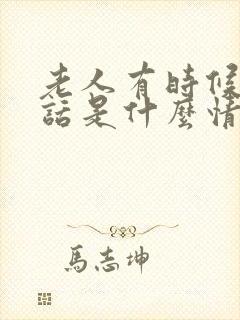 老人有時候
話是什麼情
馬志坤